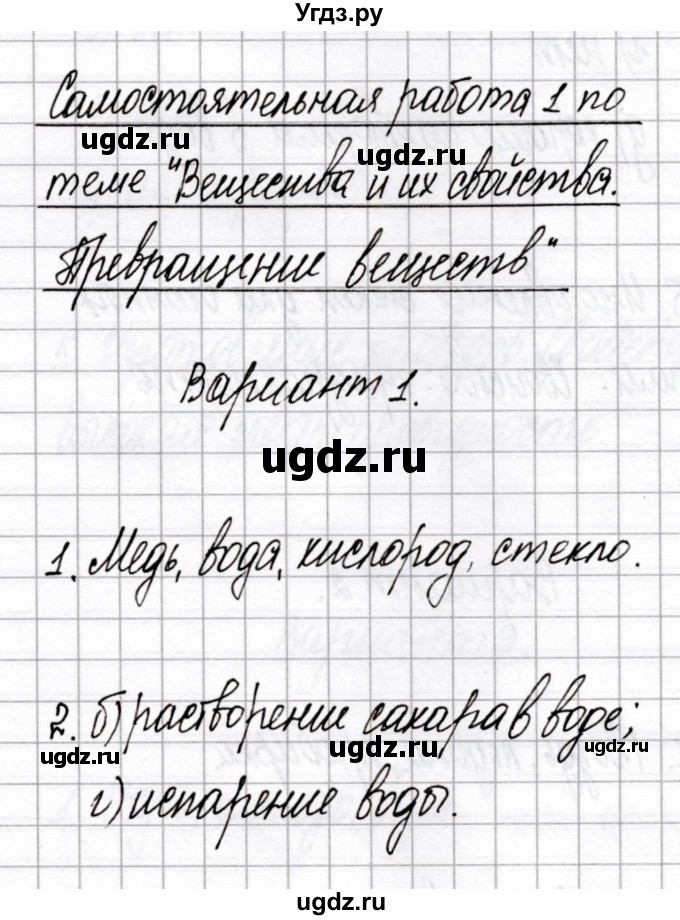 Угдз.ру
Самостоятельная работа 1 по
ugdz.ru
ugdz.ru
теме "Вещества и их свойства.
Превращение веществ"
Вариант 1.
ugdz.ru
1. Медь, вода, кислород, стекло.
ugdz.ru
2. б) растворение сахара в воде;
ugdz.ru
ugdz.ru
г) испарение воды.
ugdz.ru